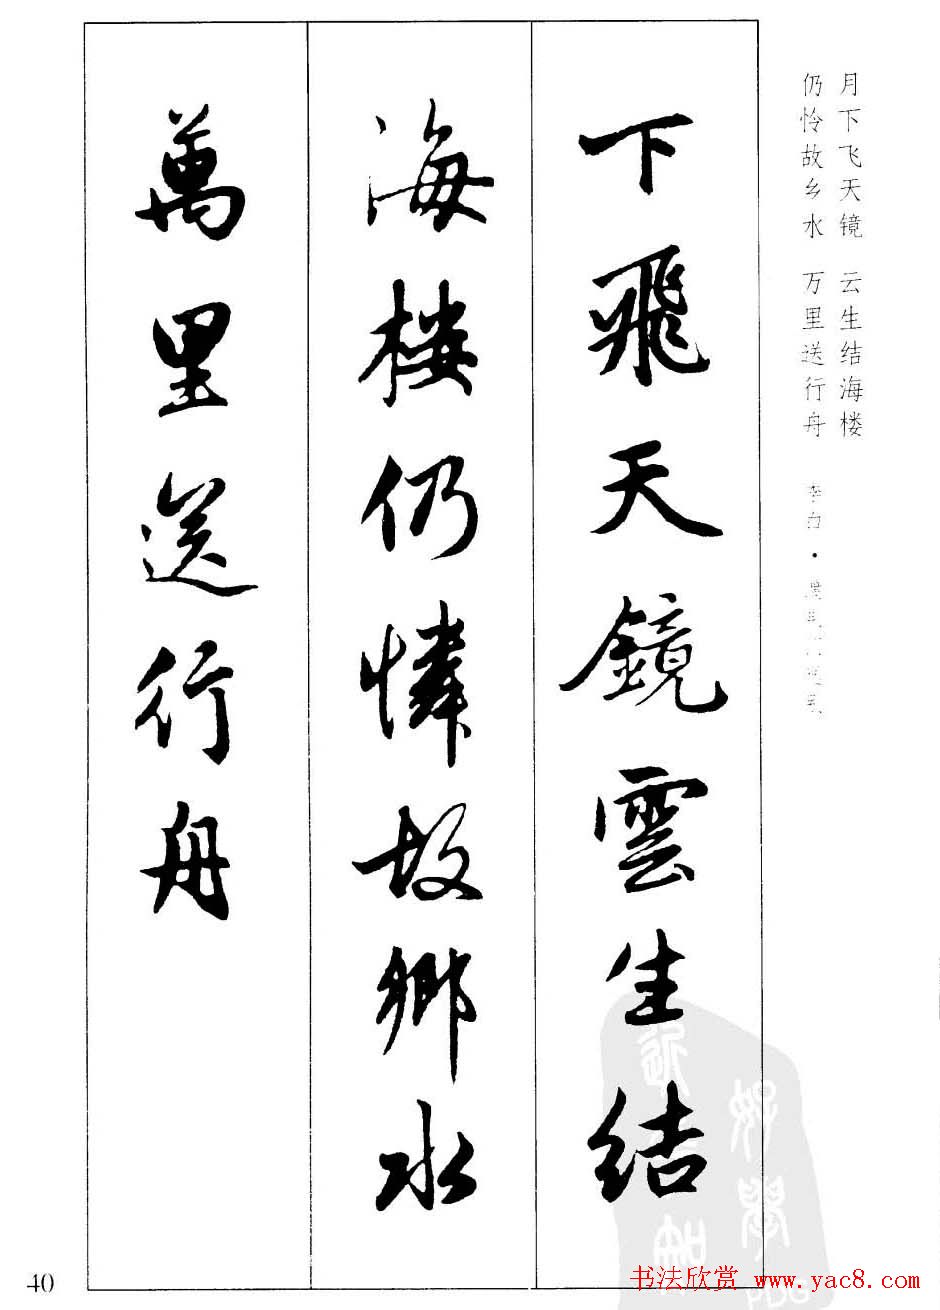 月下飞天镜 云生结海楼
仍怜故乡水 万里送行舟 李白·
下飛天鏡雲生结
海楼仍憐故鄉水
萬里送行舟
40
书法欣赏 www.yac8.com